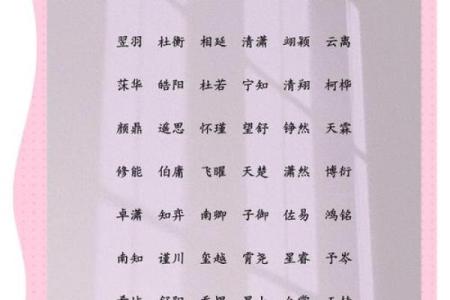 翌羽 杜衡 相延 清潇 翊颖 云离
莯华 皓阳 杜若 宁知 清翔 柯桦
颜鼎 遥思 怀瑾 望舒 铮然 天霖
修能 伯庸 飞曜 天楚 潇然 博衍
卓潇 知弈 南卿 子御 佐易 鸿铭
南知 谨川 玺越 霄尧 星睿 予岑